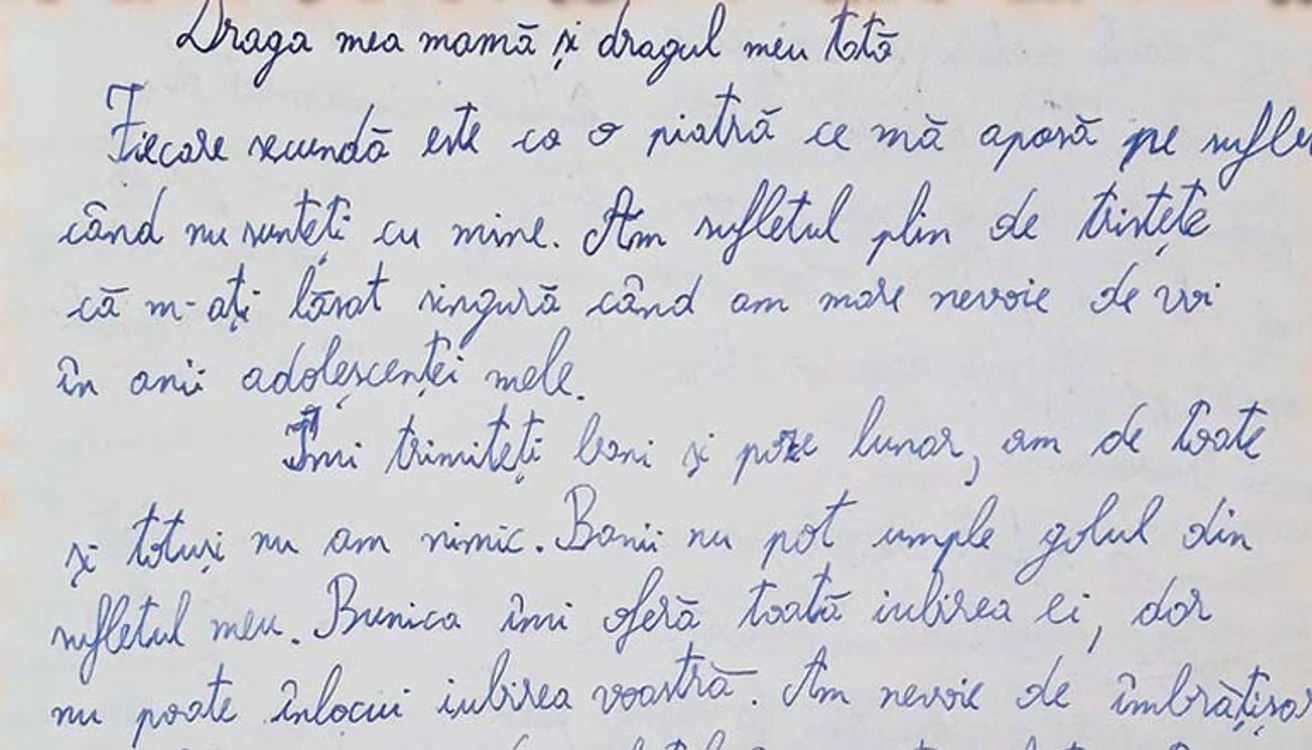 Draga mea mamă și dragul meu tată
Fiecare secundă este ca o piatră ce mă apasă pe sufle
când nu sunteți cu mine. Am sufletul plin de tristețe
că m-ați lăsat singură când am mare nevoie de voi
în anii adoleșcenței mele.
Îmi trimiteți bani și poze lunar, am de toate
și totuși nu am nimic. Banii nu pot umple golul din
sufletul meu. Bunica îmi oferă toată iubirea ei, dar
nu poate înlocui iubirea voastră. Am nevoie de îmbrățișar